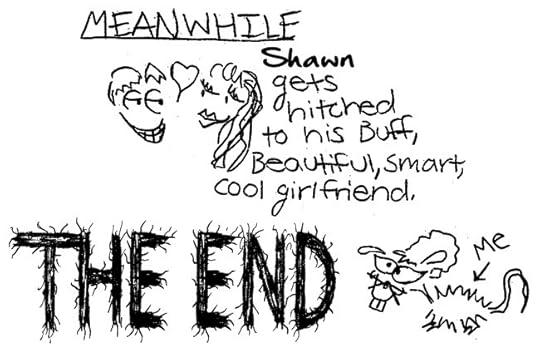 MEANWHILE
Shawn
gets
hitched
to his Buff,
Beautiful, Smart,
cool girlfriend.
THE END
Me